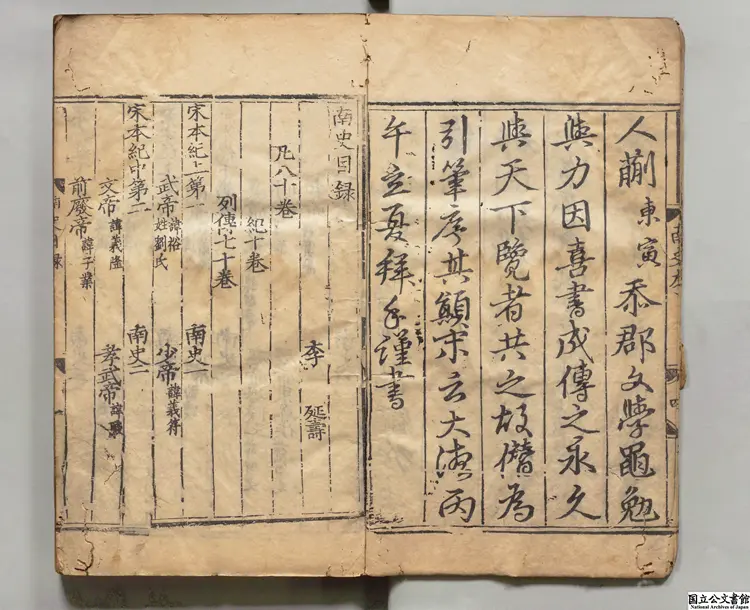 人蒯東寅忝郡文學黽勉
與力因喜書成傳之永久
與天下覽者共之故僭為
引筆序其顛末云大德丙
午立夏拜手謹書
南史目録
李延壽
凡八十卷
紀十巻
列傳七十巻
宋本紀上第一 南史一
武帝諱裕姓劉氏 少帝諱義符
宋本紀中第二 南史二
文帝諱義隆 孝武帝諱駿
前廢帝諱子業
南史目録
国立公文書館
National Archives of Japan